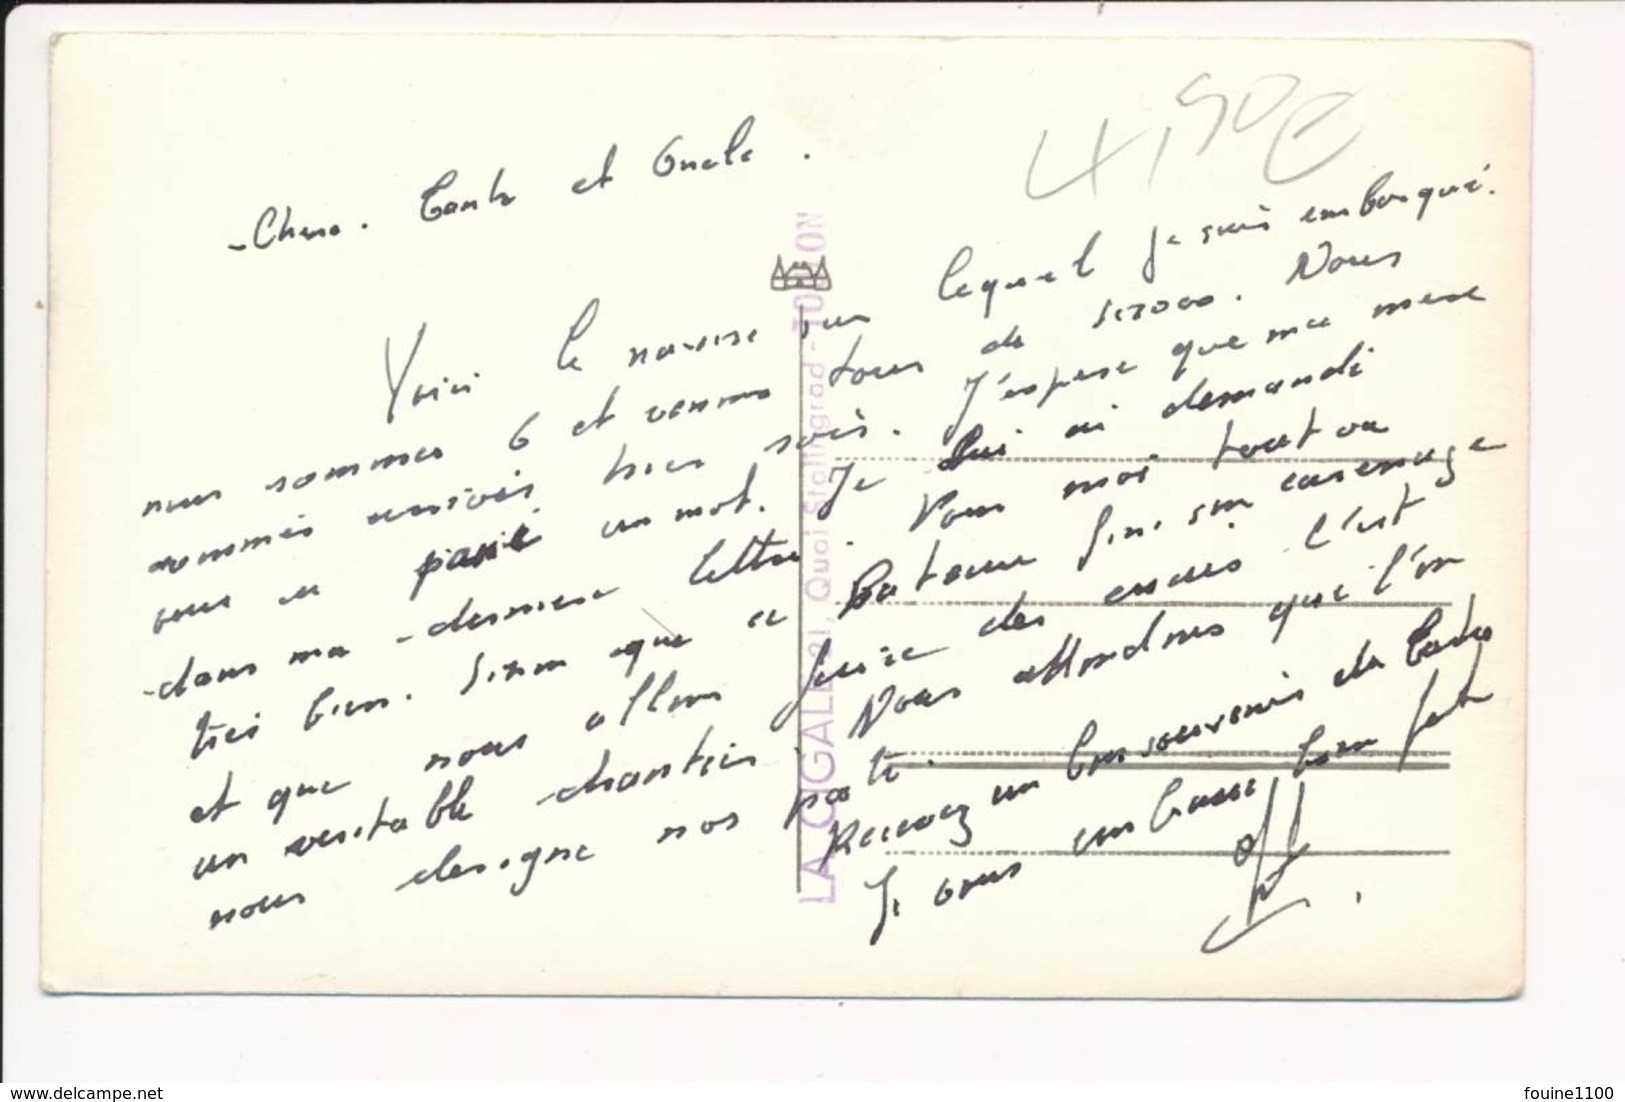 Chers. Tante et Oncle.
4,50€
Voici le navire sur lequel je suis embarqué.
nous sommes 6 et venons tous de sirocco. Nous
sommes arrivés hier soir. J'espère que ma mère
vous a passé un mot. Je lui ai demandé
dans ma dernière lettre. Pour moi tout va
très bien. Sinon que ce bateau fini son carenage
et que nous allons faire des essais. C'est
un veritable chantier. Nous attendons que l'on
nous designe nos poste.
Recevez un bon souvenir du
Je vous embrasse bien fort
LA CIGALE 21, Quai Stalingrad - TOULON
www.delcampe.net
fouine1100